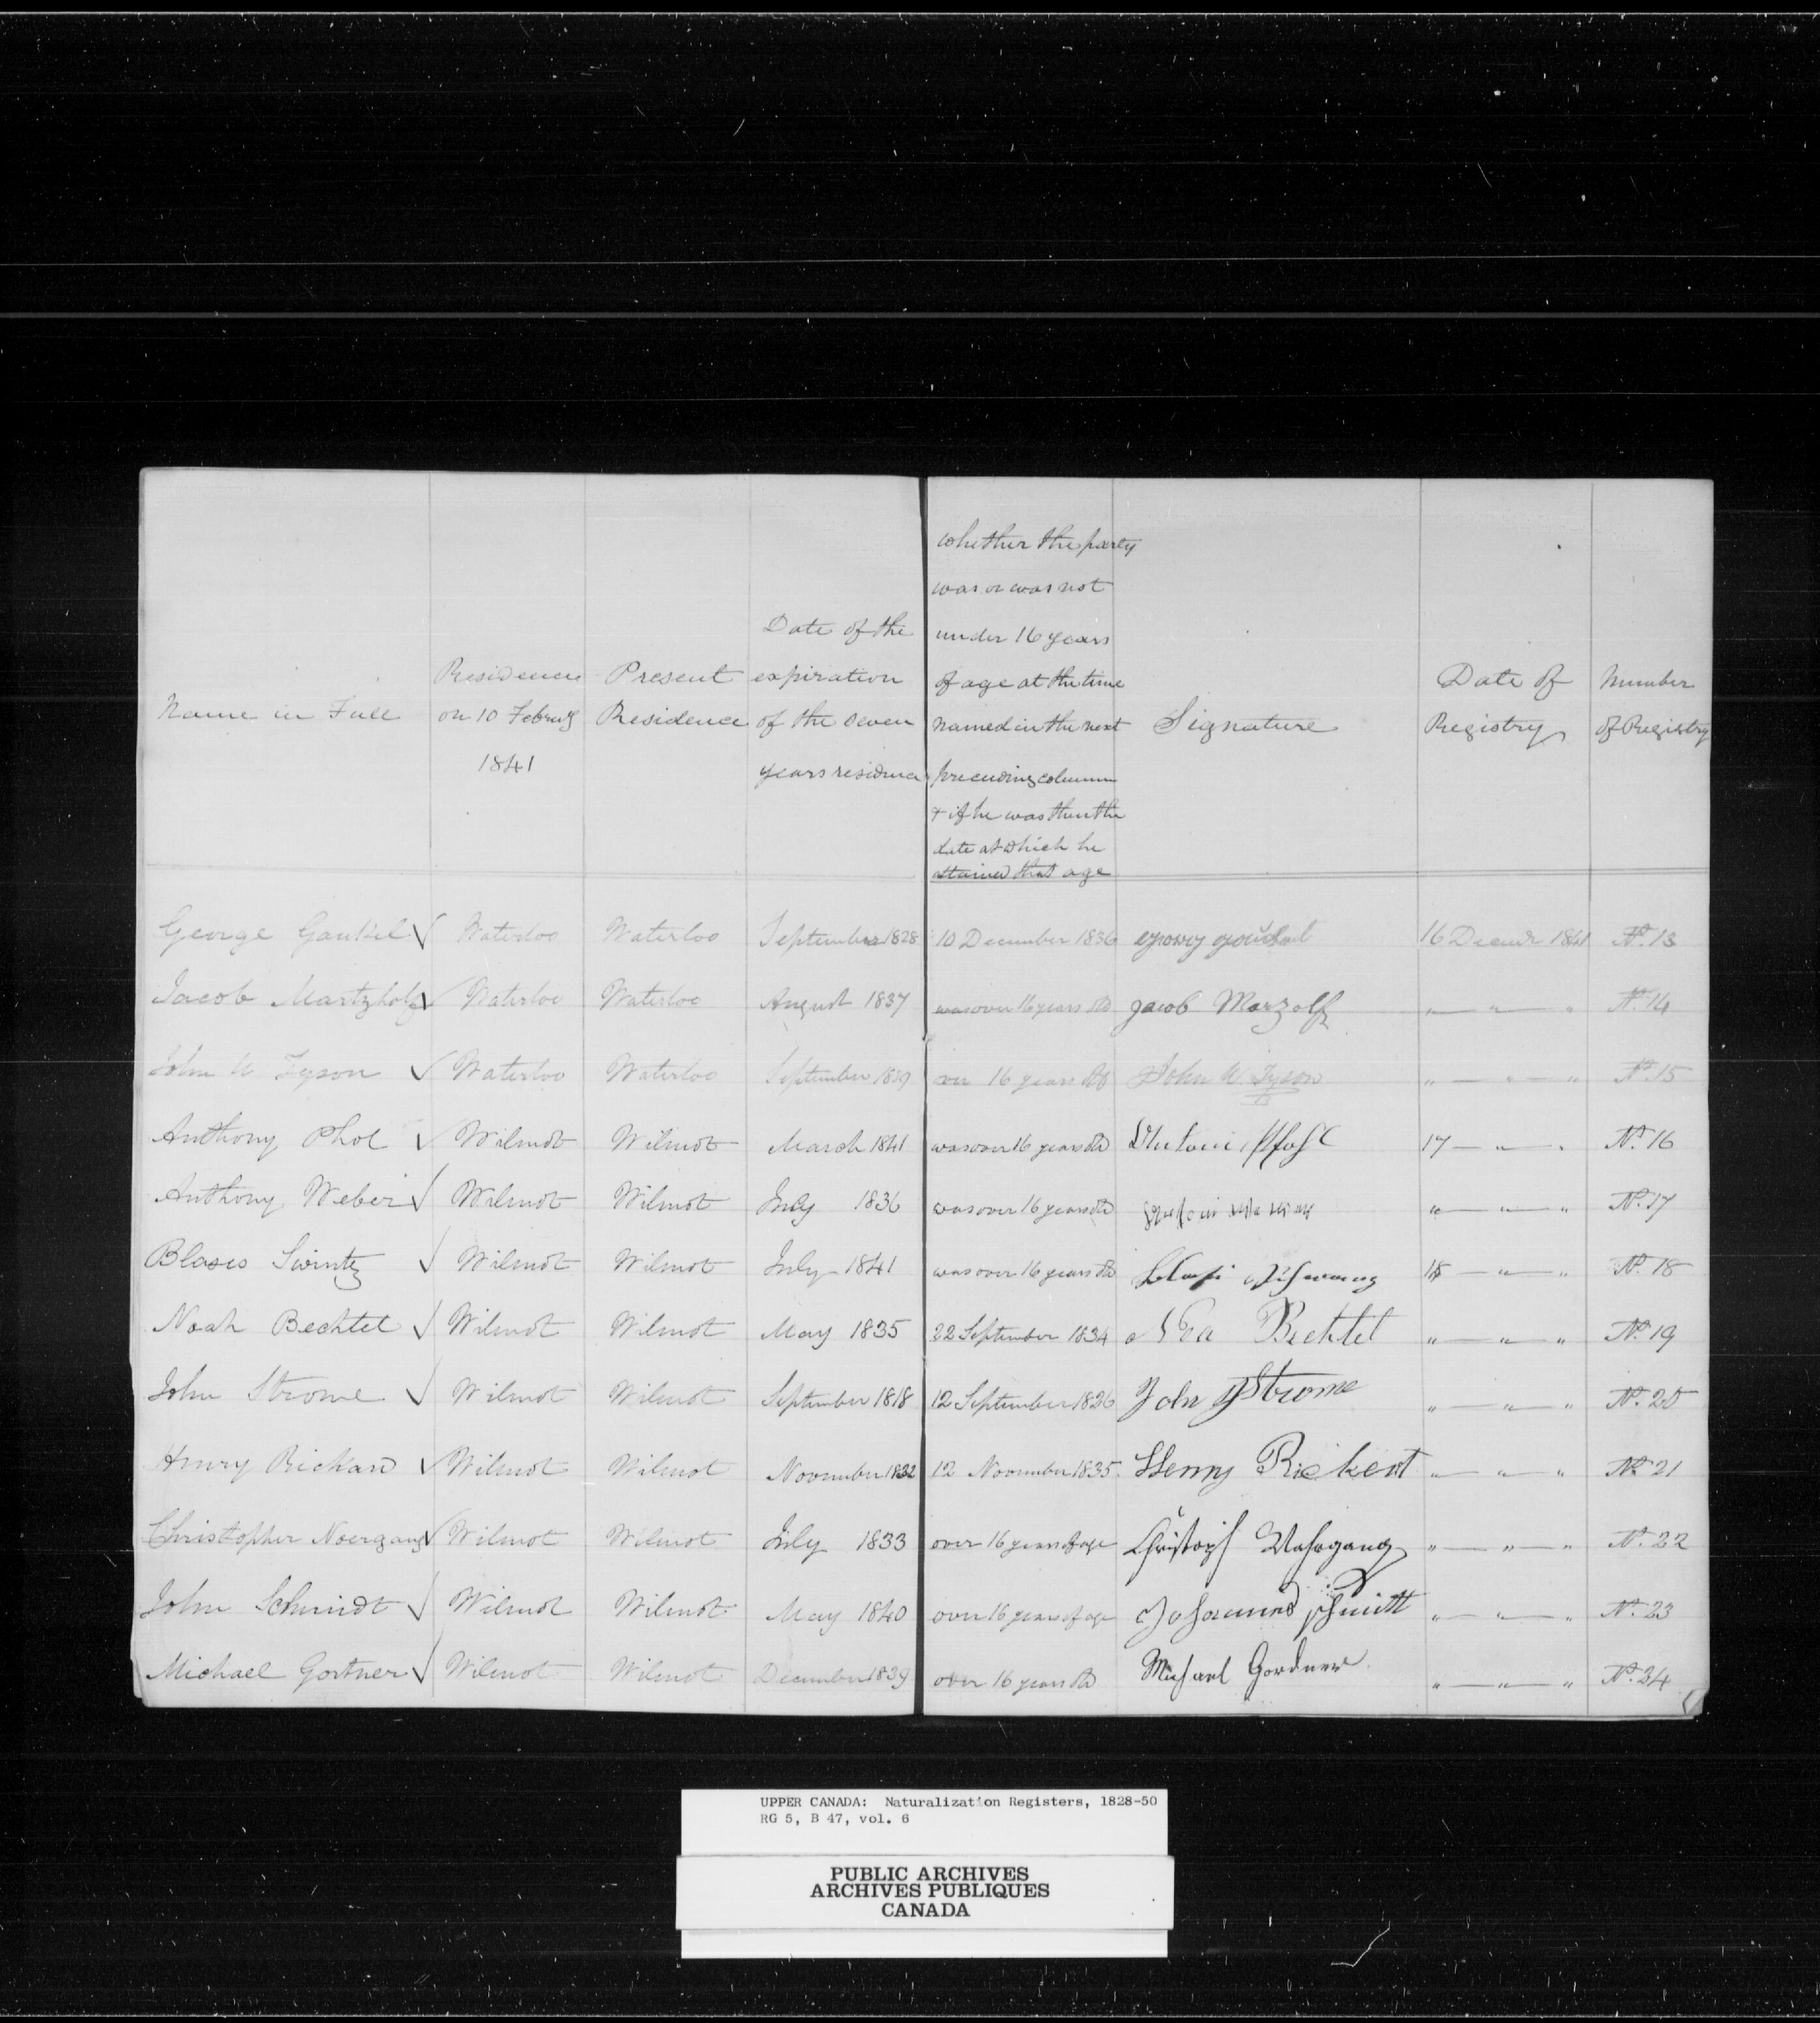 Name in Full
Residence on 10 Februy 1841
Present Residence
Date of the expiration of the seven years residence
whether the party
was or was not
under 16 years
of age at the time
named in the next
preceeding column
+ if he was then the
date at which he
attained that age
Signature
Date of Registry
Number of Registry
George Gaukel Waterloo Waterloo September 1828 10 December 1836 16 Decemr 1841 No. 13
Jacob Martzholf Waterloo Waterloo August 1837 was over 16 years old Jacob Marzolf " — " — " No. 14
John W Tyson Waterloo Waterloo September 1839 over 16 years old John W. Tyson " — " — " No. 15
Anthony Phol Wilmot Wilmot March 1841 was over 16 years old Pfohl 17 — " — " No. 16
Anthony Weber Wilmot Wilmot July 1836 was over 16 years old " — " — " No. 17
Blases Swintz Wilmot Wilmot July 1841 was over 16 years old 18 — " — " No. 18
Noah Bechtel Wilmot Wilmot May 1835 22 September 1834 Noa Bechtel " — " — " No. 19
John Strome Wilmot Wilmot September 1818 12 September 1826 John Strome " — " — " No. 20
Henry Rickard Wilmot Wilmot November 1832 12 November 1835 Henry Rickert " — " — " No. 21
Christopher Noergang Wilmot Wilmot July 1833 over 16 years of age Christoph Nahrgang " — " — " No. 22
John Schmidt Wilmot Wilmot May 1840 over 16 years of age Johannes Schmitt " — " — " No. 23
Michael Gortner Wilmot Wilmot December 1839 over 16 years old Michael Gordner " — " — " No. 24
UPPER CANADA: Naturalization Registers, 1828-50
RG 5, B 47, vol. 6
PUBLIC ARCHIVES
ARCHIVES PUBLIQUES
CANADA